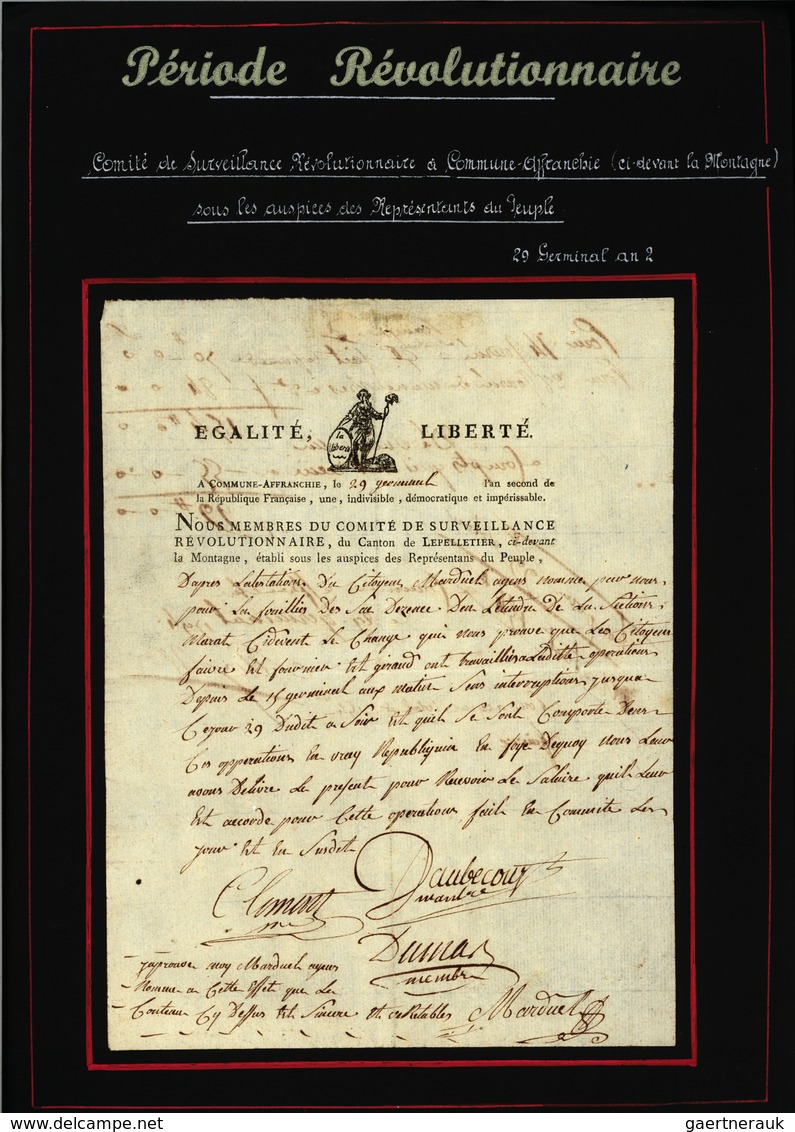 Période Révolutionnaire
Comité de Surveillance Révolutionnaire à Commune-Affranchie (ci-devant la Montagne)
sous les auspices des Représentants du Peuple
29 Germinal an 2
EGALITÉ, LIBERTÉ.
la liberté
A COMMUNE-AFFRANCHIE, le 29 germinal l'an second de
la République Française, une, indivisible, démocratique et impérissable.
NOUS MEMBRES DU COMITÉ DE SURVEILLANCE
RÉVOLUTIONNAIRE, du Canton de LEPELLETIER, ci-devant
la Montagne, établi sous les auspices des Représentans du Peuple,
Dapres Latestation Du Citoyen Marduel agens nomme par nous
pour La fouillies Des De La Sections
Marat Cidevent Le Change qui nous prouve que Les Citoyens
faivre Et fournier Et giraud ont travaillis a Laditte operations
Depuis Le 15 germineul aux matin Sens interruptions jusqua
Cejour 29 Dudit a Soir Et quil Se Sont Comporte Dens
Ces opperations En vray Republiquin En foye Dequoy nous Leur
avons Delivre Le present pour Recevoir Le Salaire quil Leur
Est accorde pour Cette operations fait En Committe Les
jour Et En Susdit
Daubecour
membre
Clement
Dumas
membre
japrouve moy Marduel agens
Nomme a Cette Effet que Le
Conteau Cy Dessus Est Sincere et veRitables Marduel
delcampe.net
gaertnerauk